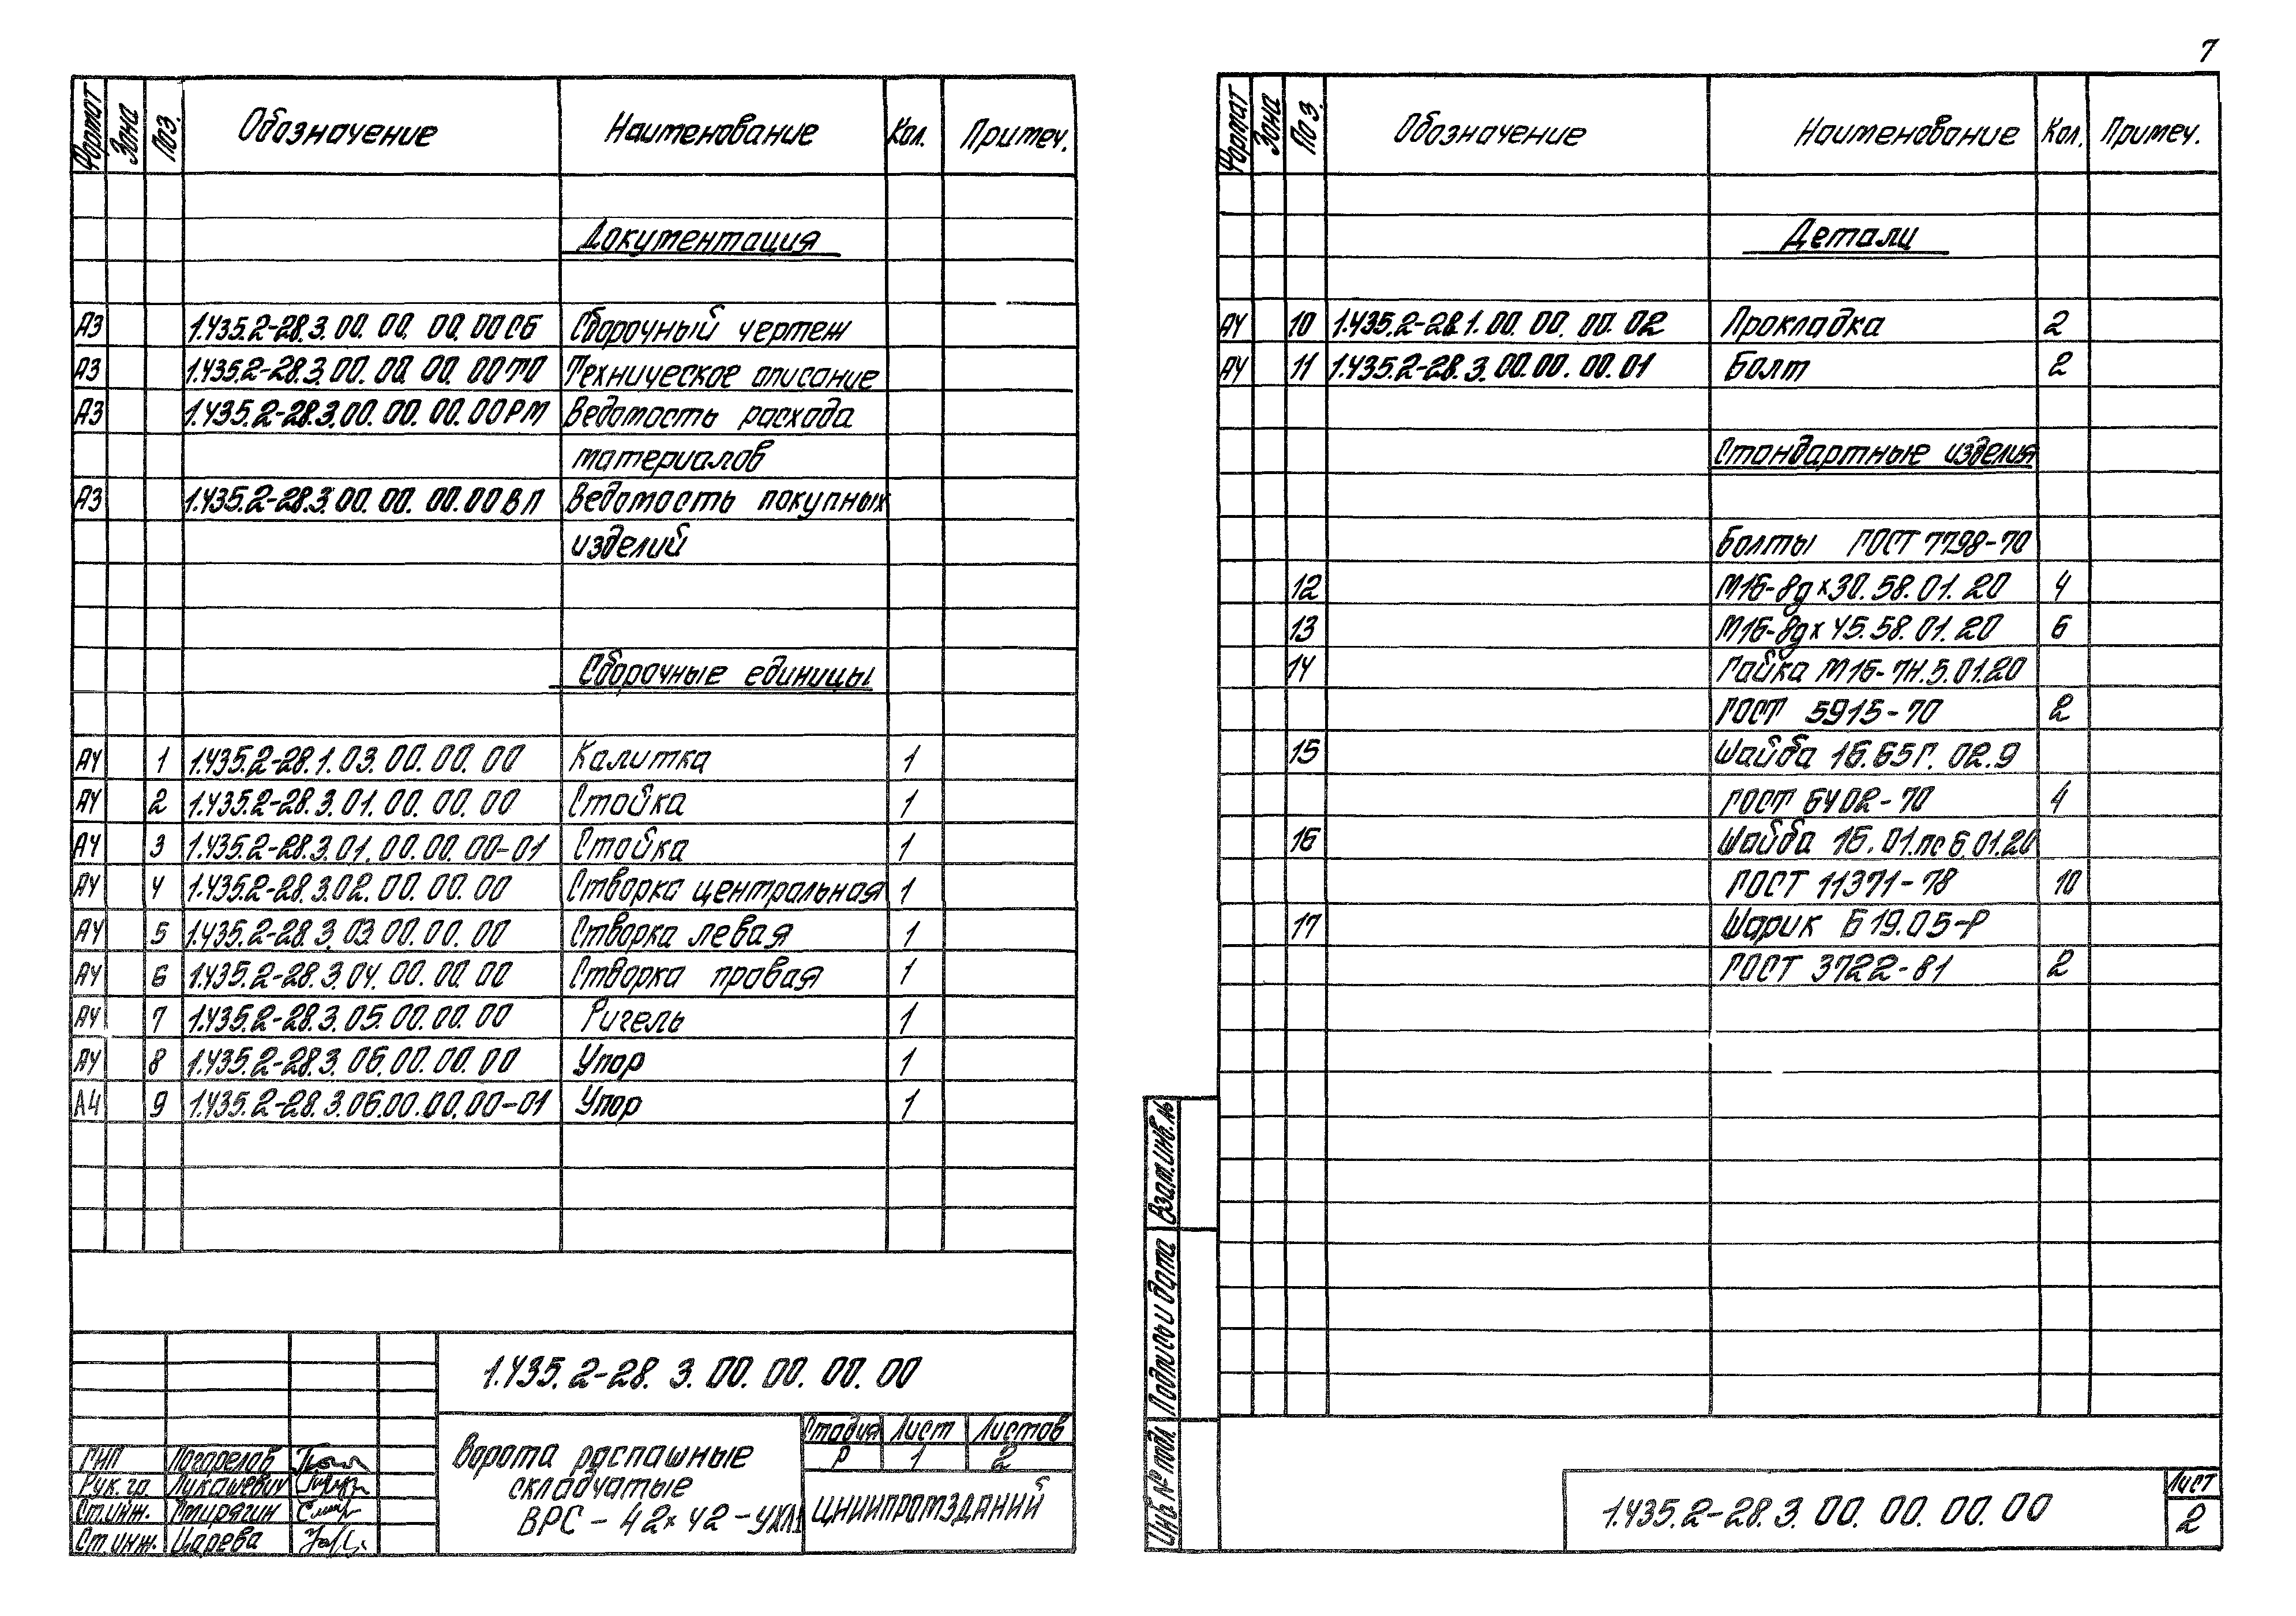 7
Формат Зона Поз. Обозначение Наименование Кол. Примеч.
Документация
А3 1.435.2-28.3.00.00.00.00СБ Сборочный чертеж
А3 1.435.2-28.3.00.00.00.00ТО Техническое описание
А3 1.435.2-28.3.00.00.00.00РМ Ведомость расхода
материалов
А3 1.435.2-28.3.00.00.00.00ВП Ведомость покупных
изделий
Сборочные единицы
А4 1 1.435.2-28.1.03.00.00.00 Калитка 1
А4 2 1.435.2-28.3.01.00.00.00 Стойка 1
А4 3 1.435.2-28.3.01.00.00.00-01 Стойка 1
А4 4 1.435.2-28.3.02.00.00.00 Створка центральная 1
А4 5 1.435.2-28.3.03.00.00.00 Створка левая 1
А4 6 1.435.2-28.3.04.00.00.00 Створка правая 1
А4 7 1.435.2-28.3.05.00.00.00 Ригель 1
А4 8 1.435.2-28.3.06.00.00.00 Упор 1
А4 9 1.435.2-28.3.06.00.00.00-01 Упор 1
1.435.2-28.3.00.00.00.00
Ворота распашные
складчатые
ВРС-42х42-УХЛ1
Стадия Лист Листов
Р 1 2
ЦНИИПРОМЗДАНИЙ
ГИП Погорелов
Рук. гр. Лукашевич
Ст.инж. Смирягин
Ст инж. Царева
Формат Зона Поз. Обозначение Наименование Кол. Примеч.
Детали
А4 10 1.435.2-28.1.00.00.00.02 Прокладка 2
А4 11 1.435.2-28.3.00.00.00.01 Болт 2
Стандартные изделия
Болты ГОСТ 7798-70
12 М16-8gх30.58.01.20 4
13 М16-8gх45.58.01.20 6
14 Гайка М16-7Н.5.01.20
ГОСТ 5915-70 2
15 Шайба 16.65Г.02.9
ГОСТ 6402-70 4
16 Шайба 16.01.пс6.01.20
ГОСТ 11371-78 10
17 Шарик Б19.05-Р
ГОСТ 3722-81 2
Взам.инв.№
Подпись и дата
Инв.№ подл.
1.435.2-28.3.00.00.00.00
Лист
2